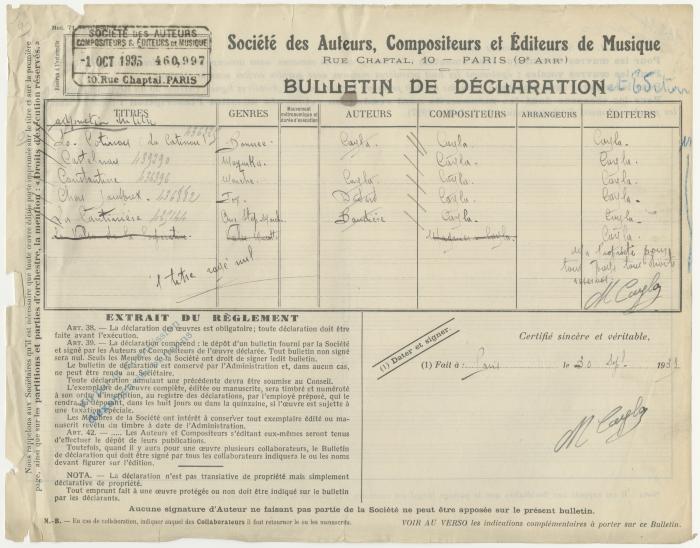 SOCIÉTÉ DES AUTEURS
COMPOSITEURS & ÉDITEURS DE MUSIQUE
-1 OCT 1935 460,997
10. Rue Chaptal. PARIS
Société des Auteurs, Compositeurs et Éditeurs de Musique
RUE CHAPTAL, 10 — PARIS (9e ARRt)
BULLETIN DE DÉCLARATION
TITRES GENRES AUTEURS COMPOSITEURS ARRANGEURS ÉDITEURS
Cayla. Cayla. Cayla.
Castelnau 439290 Mazurka. Cayla. Cayla.
Constantine 436396 Marche. Cayla. Cayla. Cayla.
Chez 436882 Fox. David Cayla. Cayla.
La Cantinière 48744 Cayla. Cayla.
Cayla.
1 titre rayé nul
M Cayla
EXTRAIT DU RÈGLEMENT
ART. 38. — La déclaration des œuvres est obligatoire; toute déclaration doit être
faite avant l'exécution.
ART. 39. — La déclaration comprend: le dépôt d'un bulletin fourni par la Société
et signé par les Auteurs et Compositeurs de l'œuvre déclarée. Tout bulletin non signé
sera nul. Seuls les Membres de la Société ont droit de signer ledit bulletin.
Le bulletin est conservé par l'Administration et, dans aucun cas,
ne peut être rendu au Sociétaire.
Toute déclaration annulant une précédente devra être soumise au Conseil.
L'exemplaire de l'œuvre complète, éditée ou manuscrite, sera timbré et numéroté
à son ordre d'inscription, au registre des déclarations, par l'employé préposé, qui le
rendra au déposant, dans les huit jours ou dans la quinzaine, si l'œuvre est sujette à
une taxation spéciale.
Les Membres de la Société ont intérêt à conserver tout exemplaire édité ou ma-
nuscrit revêtu du timbre à date de l'Administration.
ART. 42. — ..... Les Auteurs et Compositeurs s'éditant eux-mêmes seront tenus
d'effectuer le dépôt de leurs publications.
Toutefois, quand il y aura pour une œuvre plusieurs collaborateurs, le Bulletin
de déclaration qui doit être signé par tous les collaborateurs indiquera le ou les noms
devant figurer sur l'édition.
NOTA. — La déclaration n'est pas translative de propriété mais simplement
déclarative de propriété.
Tout emprunt fait à une œuvre protégée ou non doit être indiqué sur le bulletin
par les déclarants.
(1) Dater et signer.
Certifié sincère et véritable,
(1) Fait à : Paris le 30 Sept. 193
M Cayla
Aucune signature d'Auteur ne faisant pas partie de la Société ne peut être apposée sur le présent bulletin.
N.-B. — En cas de collaboration, indiquer auquel des Collaborateurs il faut retourner le ou les manuscrits.
VOIR AU VERSO les indications complémentaires à porter sur ce Bulletin.
Nous rappelons aux Sociétaires qu'il est nécessaire que toute œuvre éditée porte imprimée sur le titre et sur la première
page, ainsi que sur les partitions et parties d'orchestre, la mention: « Droits d'exécution réservés. »